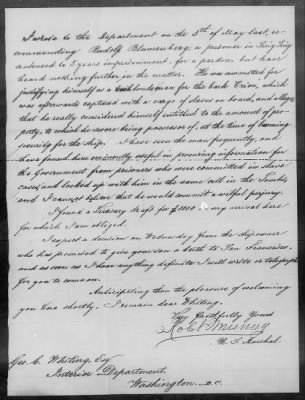 I wrote to the Department on the 5th of May last, re-
commending Rudolf Blumenberg, a prisoner in Sing Sing
sentenced to 5 years imprisonment, for a pardon, but have
heard nothing further in the matter. He was committed for
justifying himself as a bondsman for the bark Orion, which
was afterwards captured with a cargo of slaves on board, and alleges
that he really considered himself entitled to the amount of pro-
perty, to which he swore being possessor of, at the time of becoming
security for the ship. I have seen the man frequently, and
have found him very useful in procuring information for
the Government from prisoners who were committed in slave
cases, and locked up with him in the same cell in the Tombs,
and I cannot believe that he would commit a wilful perjury.
I found a Treasury draft for $1000 on my arrival here
for which I am obliged.
I expect a decision on Wednesday from the shipowner
who has promised to give you a berth to San Francisco,
and as soon as I hear anything definite I will write or telegraph
for you to come on.
Anticipating the pleasure of welcoming
you here shortly, I remain dear Whiting,
Very faithfully Yours
Rob Murray
U. S. Marshal
Geo. C. Whiting, Esq
Interior Department,
Washington D.C.